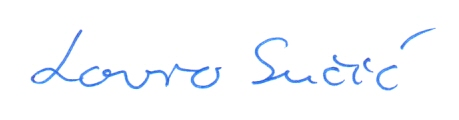 Lovro Sučić